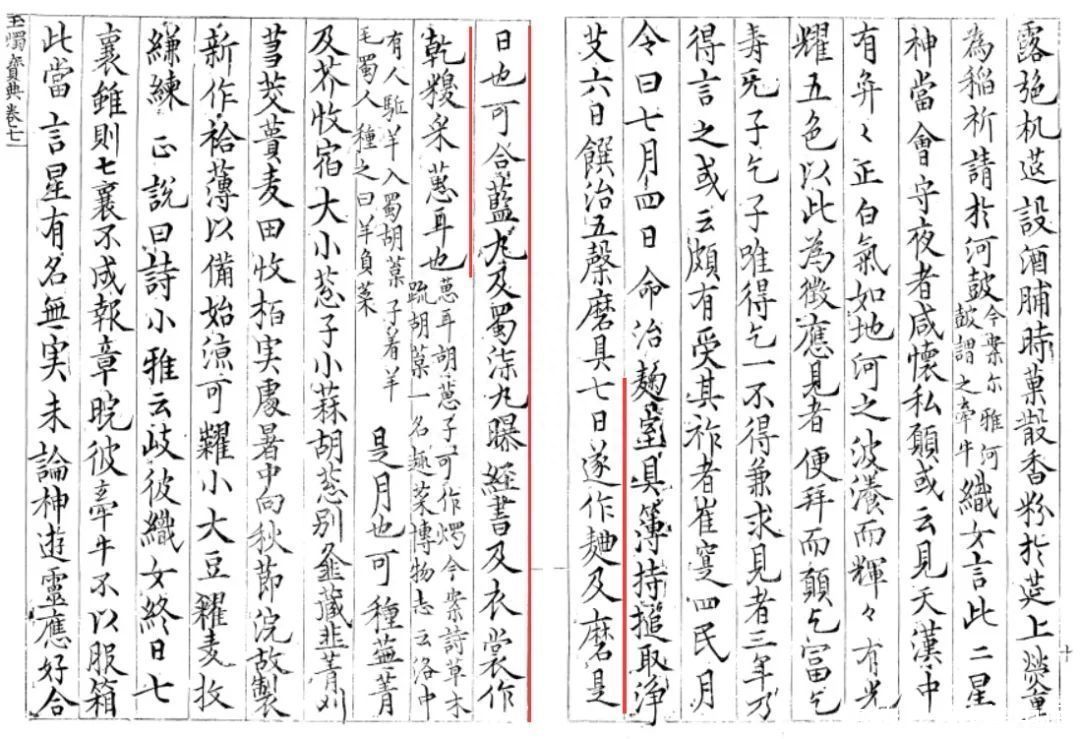 露施机筵設酒脯時菓散香粉於筵上熒重
為稻祈請於河皷今案尓雅河皷謂之牽牛織女言此二星
神當會守夜者咸懷私願或云見天漢中
有弈〻正白氣如地河之波瀁而輝々有光
耀五色以此為徵應見者便拜而願乞冨乞
壽旡子乞子唯得乞一不得兼求見者三年乃
得言之或云頗有受其祚者崔寔四民月
令曰七月四日命治麹室具簿持搥取淨
艾六日饌治五糓磨具七日遂作麹及磨是
十
日也可合藍丸及蜀柒丸曝經書及衣裳作
乾糗采葸耳也葸耳胡葸子可作燭今案詩草木疏胡菓一名趣菜博物志云洛中
有人駈羊入蜀胡菓子着羊毛蜀人種之曰羊負菜是月也可種蕪菁
及芥收宿大小葱子小蒜胡葱别韰藏韭菁刈
芻茭蕢麦田收栢実處暑中向秋節浣故製
新作袷薄以備始涼可糶小大豆糴麦收
縑練正說曰詩小雅云歧彼織女終日七
襄雖則七襄不成報章睆彼牽牛不以服箱
此當言星有名無実未論神遊靈應好合
玉燭寶典卷七